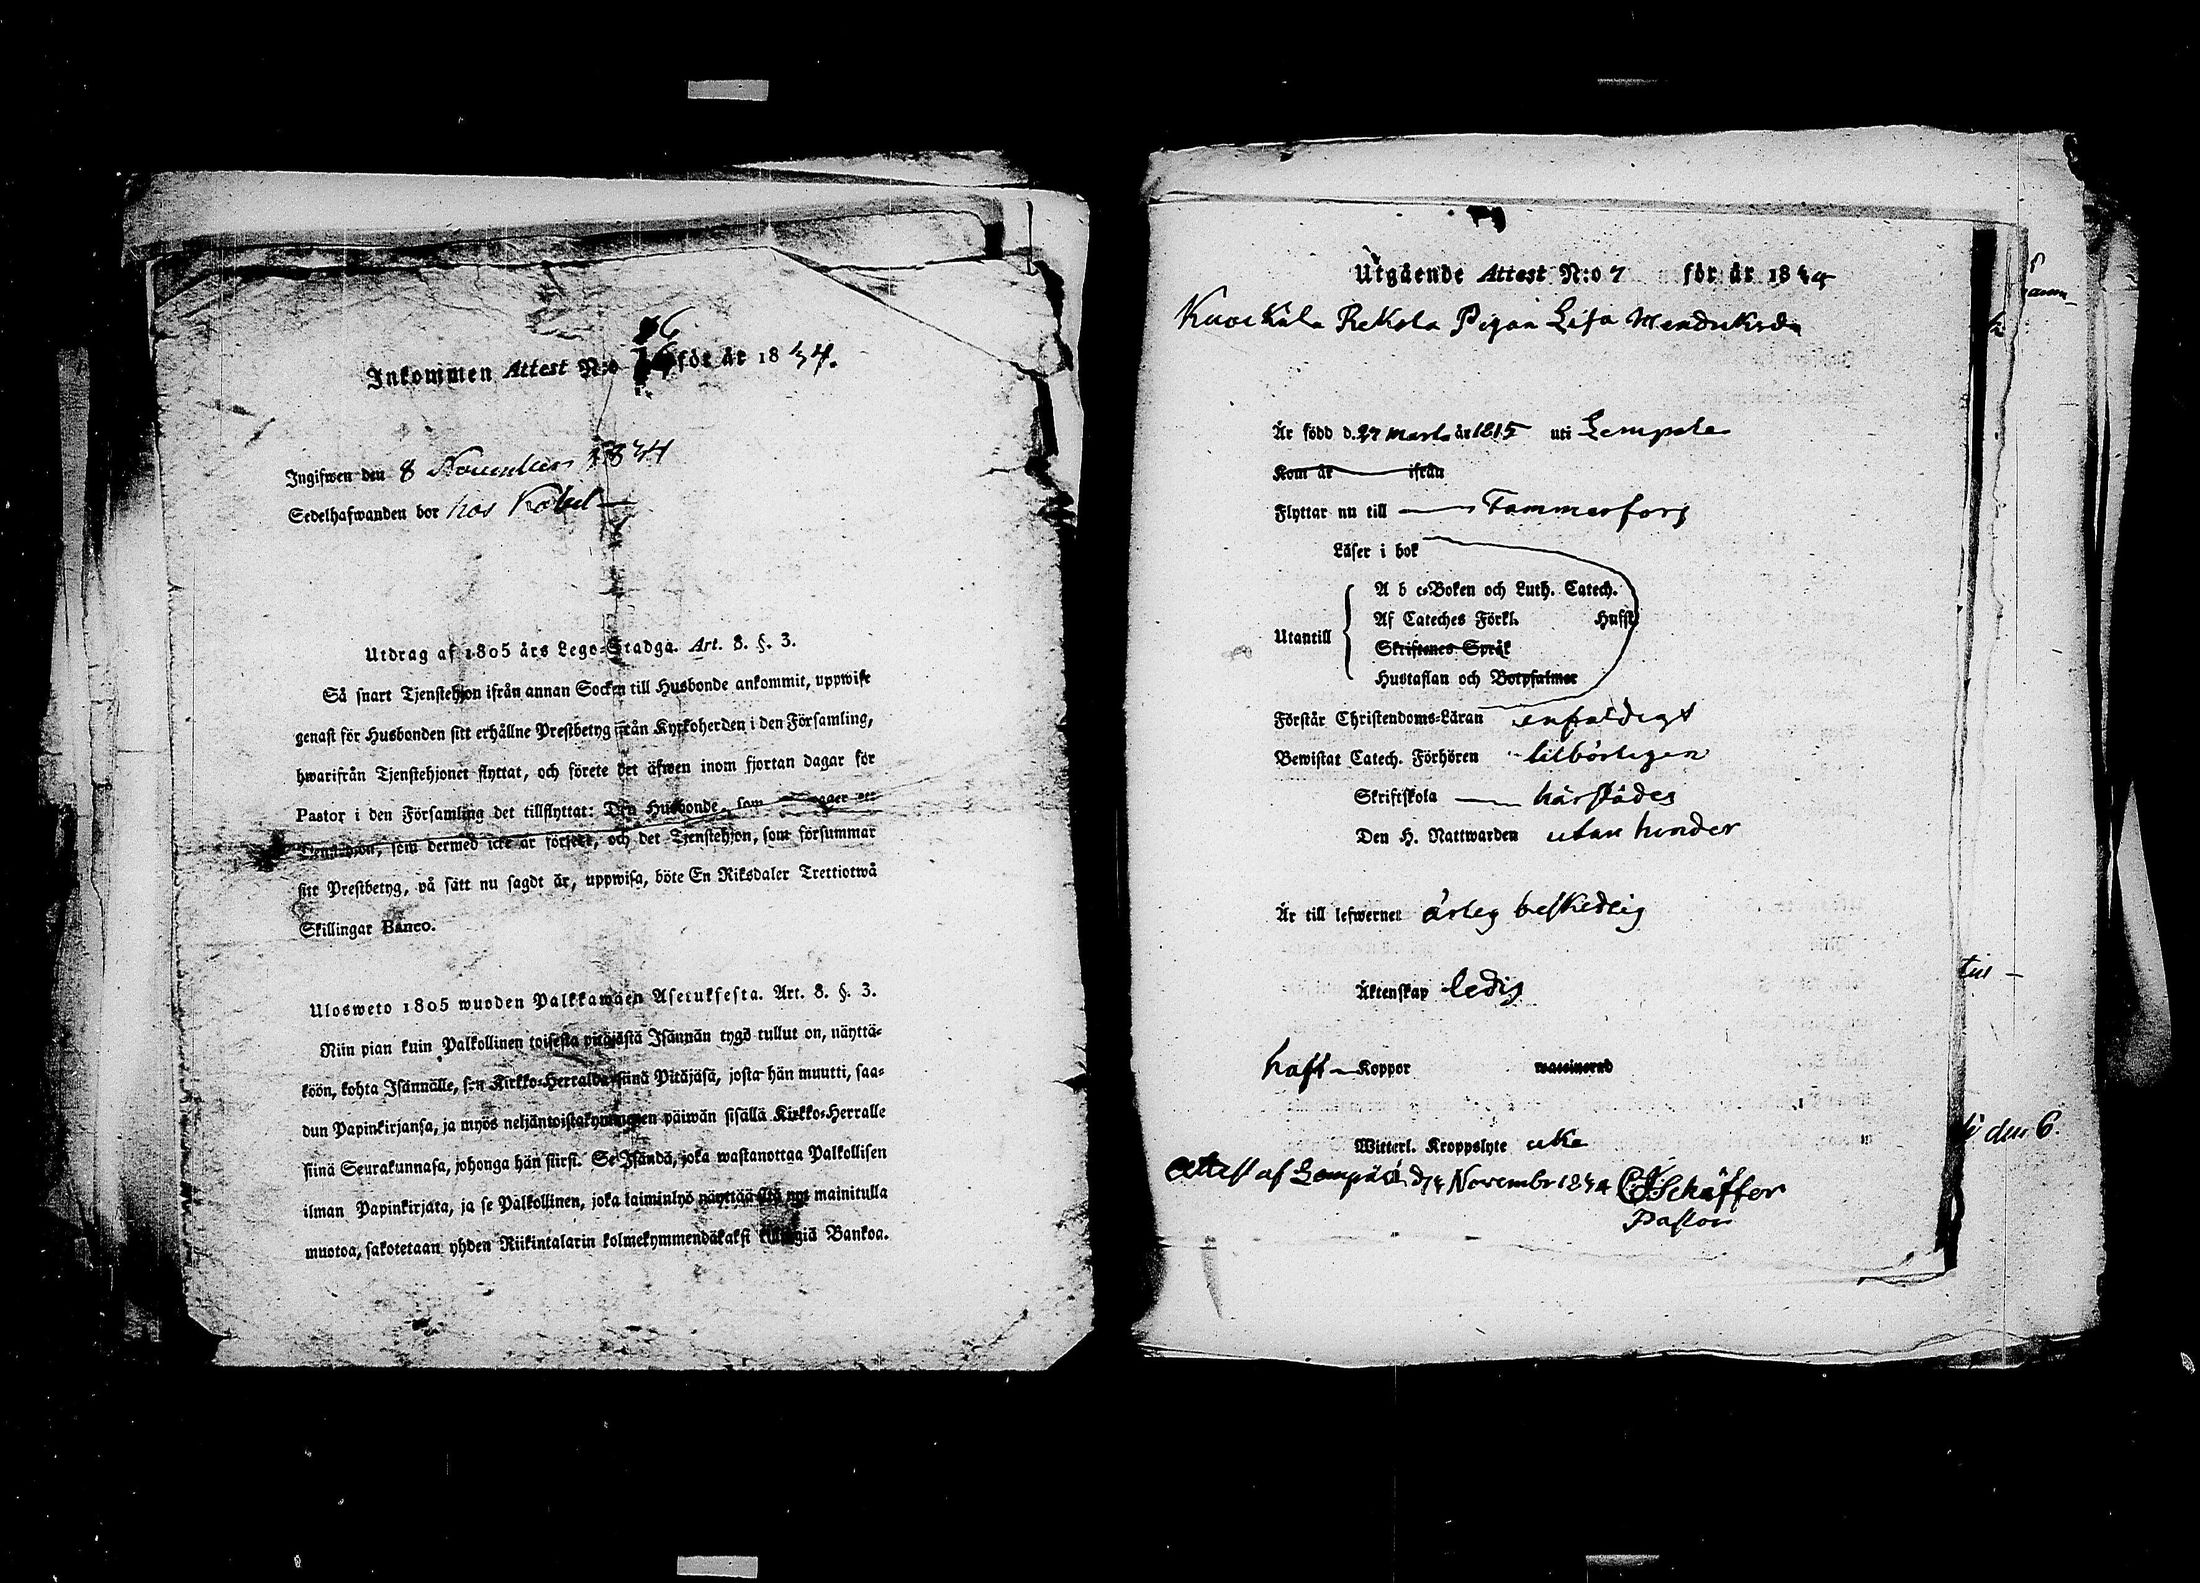 Inkommen Attest N:o 16 för år 1834.
Ingifwen den 8 November 1834
Sedelhafwanden bor hos
Utdrag af 1805 års Lego-Stadga. Art. 8. §. 3.
Så snart Tjenstehjon ifrån annan Socken till Husbonde ankommit, uppwise
genast för Husbonden sitt erhållne Prestbetyg ifrån Kyrkoherden i den Församling,
hwarifrån Tjenstehjonet flyttat, och förete det äfwen inom fjortan dagar för
Pastor i den Församling det tillflyttat: Den Husbonde, som
Tjenstehjon, som dermed icke är försedt, och det Tjenstehjon, som försummar
sitt Prestbetyg, på sätt nu sagdt är, uppwisa, böte En Riksdaler Trettiotwå
Skillingar Banco.
Ulosweto 1805 wuoden Palkkawäen Asetuksesta. Art. 8. §. 3.
Niin pian kuin Palkollinen toisesta pitäjästä Isännän tygö tullut on, näyttä-
köön, kohta Isännälle, sen Kirkko-Herralda siinä Pitäjäsä, josta hän muutti, saa-
dun Papinkirjansa, ja myös neljäntoistakymmenen päiwän sisällä Kirkko-Herralle
siinä Seurakunnasa, johonga hän siirsi. Se Isändä, joka wastanottaa Palkollisen
ilman Papinkirjata, ja se Palkollinen, joka laiminlyö näyttää sitä nyt mainitulla
muotoa, sakotetaan yhden Riikintalarin kolmekymmendäkaksi killingiä Bankoa.
Utgående Attest N:o 7 för år 1834
Rekola Pigan Lisa
Är född d. 27 Martii år 1815 uti Lempäle
Kom år ifrån
Flyttar nu till Tammerfors
Läser i bok
A b c-Boken och Luth. Catech.
Af Cateches Förkl. Hufst
Utantill
Skriftenes Språk
Hustaflan och Botpsalmer
Förstår Christendoms-Läran enfaldigt
Bewistat Catech. Förhören tilbörligen
Skriftskola härstädes
Den H. Nattwarden utan hinder
Är till lefwernet ärlig beskedlig
Äktenskap ledig
haft Koppor waccinerad
Witterl. Kroppslyte icke
Attest af Lempälä d. 4 Novembr 1834 CJSchäffer
Pastor
den 6.